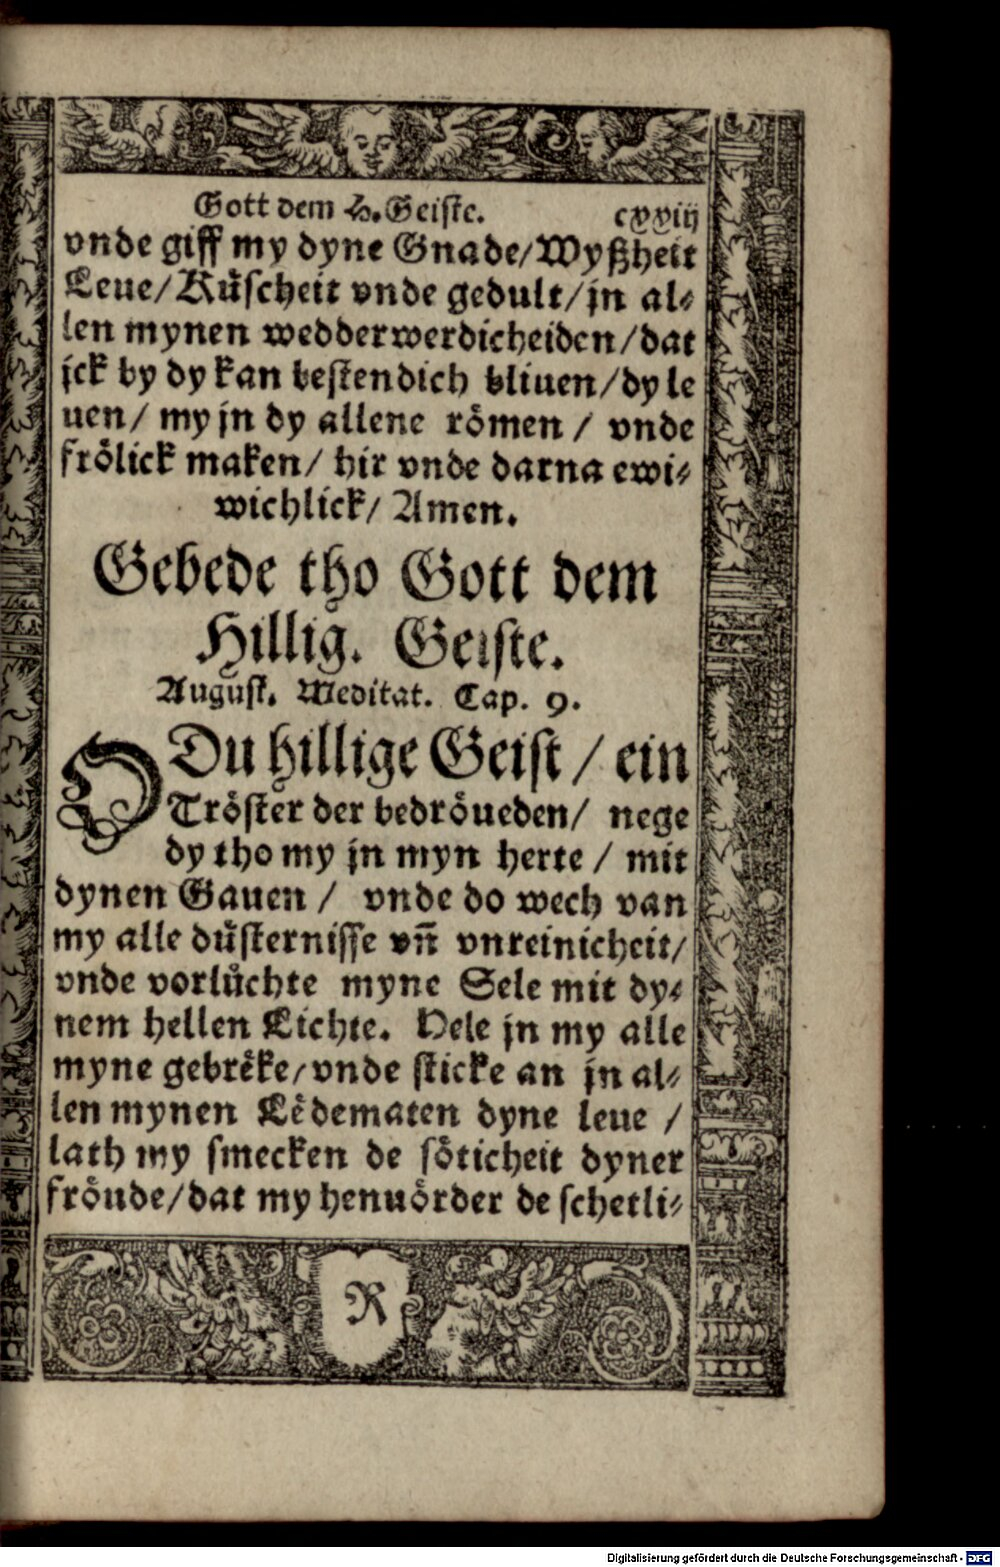 Gott dem H. Geiste. cxxiij
vnde giff my dyne Gnade/Wyßheit
Leue/Kuͤscheit vnde gedult/jn al⸗
len mynen wedderwerdicheiden/dat
jck by dy kan bestendich bliuen/dy le
uen/ my jn dy allene roͤmen / vnde
froͤlick maken/ hir vnde darna ewi⸗
wichlick/ Amen.
Gebede tho Gott dem
Hillig. Geiste.
August. Meditat. Cap. 9.
O Du hillige Geist / ein
Troͤster der bedroͤueden/ nege
dy tho my jn myn herte / mit
dynen Gauen / vnde do wech van
my alle duͤsternisse vñ vnreinicheit/
vnde vorluͤchte myne Sele mit dy⸗
nem hellen Lichte. Hele jn my alle
myne gebreͤke/vnde sticke an jn al⸗
len mynen Leͤdematen dyne leue /
lath my smecken de soͤticheit dyner
froͤude/dat my henuoͤrder de schetli⸗
R
Digitalisierung gefördert durch die Deutsche Forschungsgemeinschaft - DFG